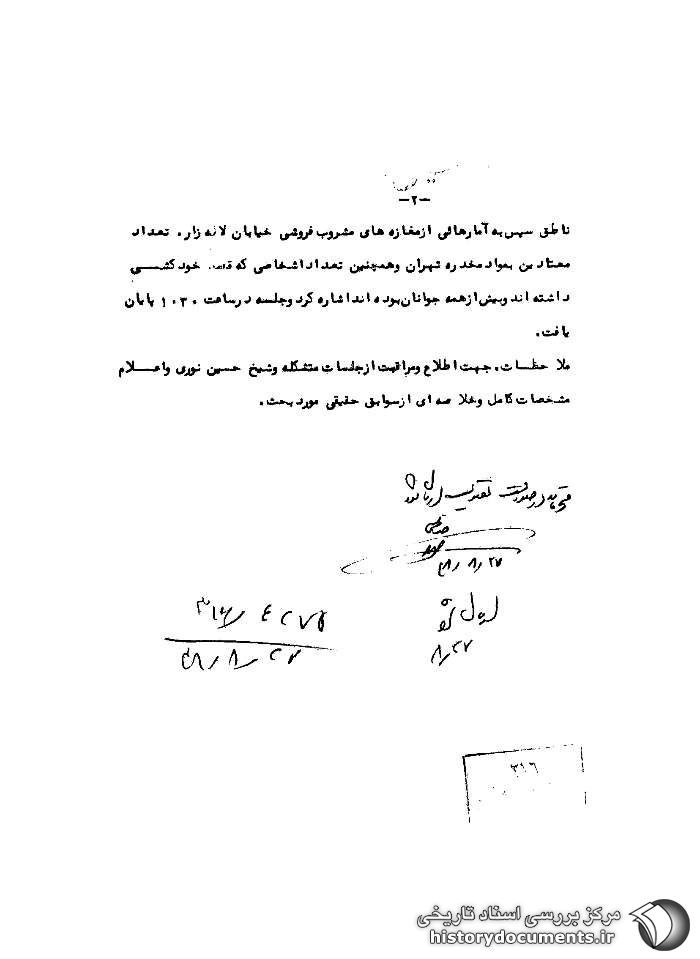 -۲-
ناطق سپس به آمارهائی از مغازه های مشروب فروشی خیابان لاله زار، تعداد
معتادین بمواد مخدره تهران وهمچنین تعداد اشخاصی که قصد خودکشی
داشته اند وبیش از همه جوانان بوده اند اشاره کرد وجلسه در ساعت ۱۰۳۰ پایان
یافت.
ملاحظات. جهت اطلاع ومراقبت از جلسات متشکله وشیخ حسین نوری واعلام
مشخصات کامل وخلاصه ای از سوابق حقیقی مورد بحث.
۴۸/۸/۲۷
۸/۲۷
۴۸/۸/۲۷
۳۱۶
مرکز بررسی اسناد تاریخی
historydocuments.ir